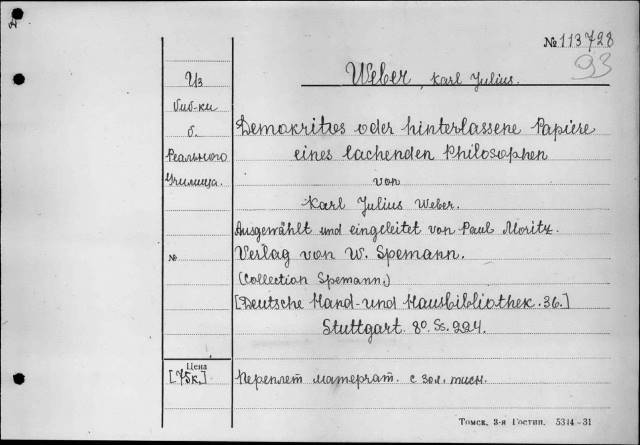 № 113728
93
Weber, Karl Julius.
Из
биб-ки
б.
Реального
Училища.
Demokritos oder hinterlassene Papiere
eines lachenden Philosophen
von
Karl Julius Weber.
Ausgewählt und eingeleitet von Paul Moritz.
№
Verlag von W. Spemann.
(Collection Spemann.)
[Deutsche Hand-und Hausbibliothek. 36.]
Stuttgart. 8º. Ss. 224.
Цена
[75к.]
Переплет матерчат. с зол. тисн.
Томск, 3-я Гостип. 5314-31